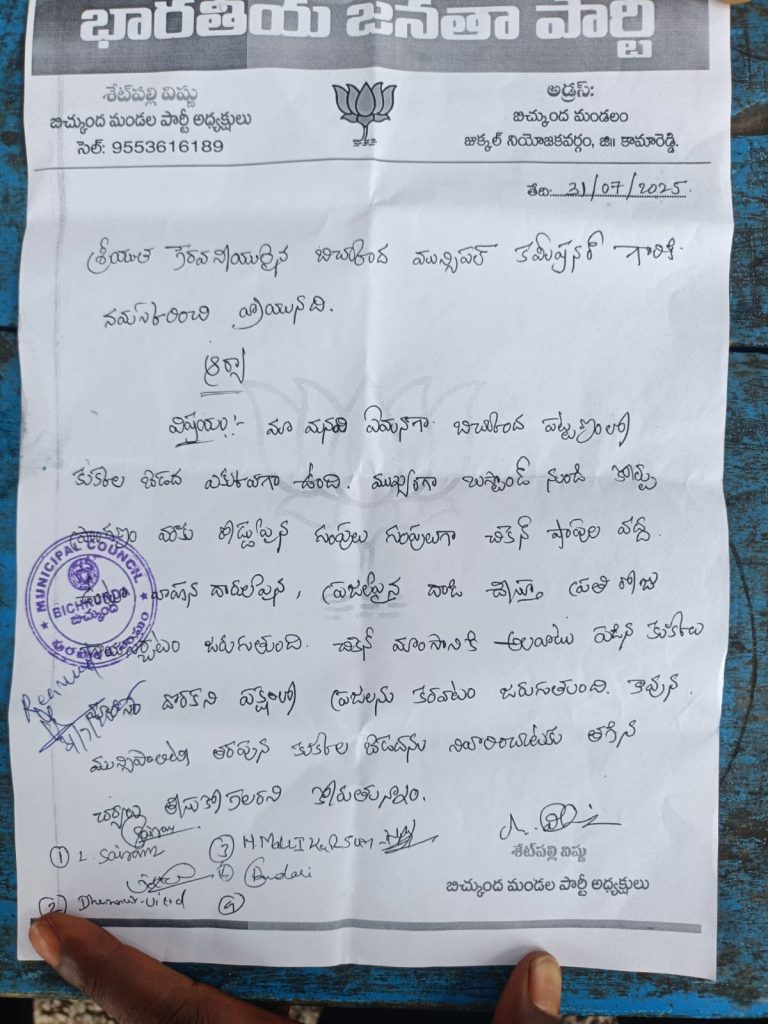 భారతీయ జనతా పార్టీ
శేట్‌పల్లి విష్ణు
బిచ్కుంద మండల పార్టీ అధ్యక్షులు
సెల్: 9553616189
అడ్రస్:
బిచ్కుంద మండలం
జుక్కల్ నియోజకవర్గం, జి॥ కామారెడ్డి.
తేది: 31/07/2025.
శ్రీయుత గౌరవనీయులైన బిచ్కుంద మున్సిపల్ కమీషనర్ గారికి
నమస్కరించి వ్రాయునది.
విషయం:- మా మనవి ఏమనగా బిచ్కుంద పట్టణంలో
కుక్కల బెడద ఎక్కువగా ఉంది. ముఖ్యంగా బస్టాండ్ నుండి కోర్టు
వరకు రోడ్డుపైన గుంపులు గుంపులుగా చికెన్ షాపుల వద్ద
వాహన దారులపైన, ప్రజలపైన దాడి చేస్తూ ప్రతి రోజు
జరుగుతుంది. చికెన్ మాంసానికి అలవాటు పడిన కుక్కలు
దొరకని పక్షంలో ప్రజలను కరవటం జరుగుతుంది. కావున
మున్సిపాలిటి తరపున కుక్కల బెడదను నివారించుటకు తగిన
చర్యలు తీసుకోగలరని కోరుతున్నాం.
MUNICIPAL COUNCIL
BICHKUNDA
బిచ్కుంద
① L. Sairam
③
②
④
శేట్‌పల్లి విష్ణు
బిచ్కుంద మండల పార్టీ అధ్యక్షులు